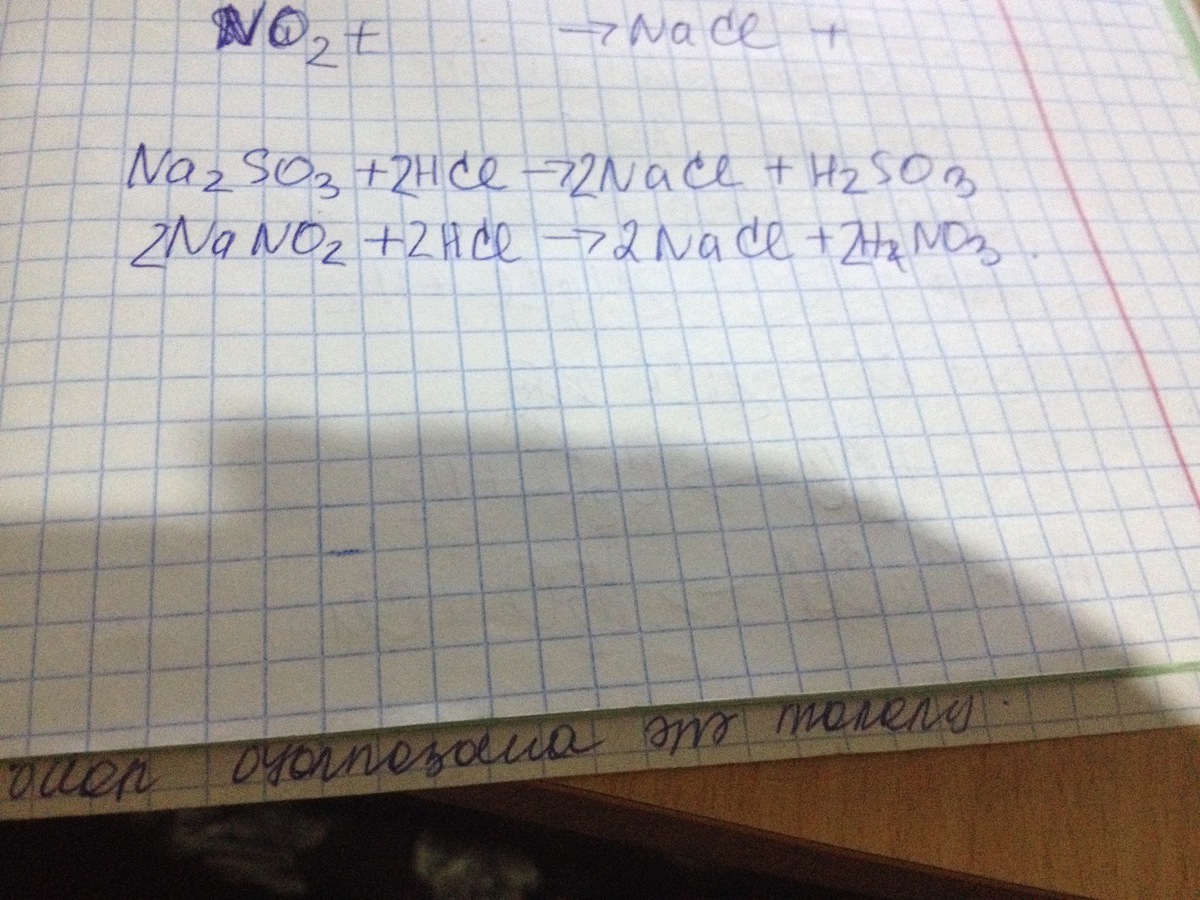 NO₂ + → NaCl +
Na₂SO₃ + 2HCl → 2NaCl + H₂SO₃
2NaNO₂ + 2HCl → 2NaCl + 2H₂NO₃